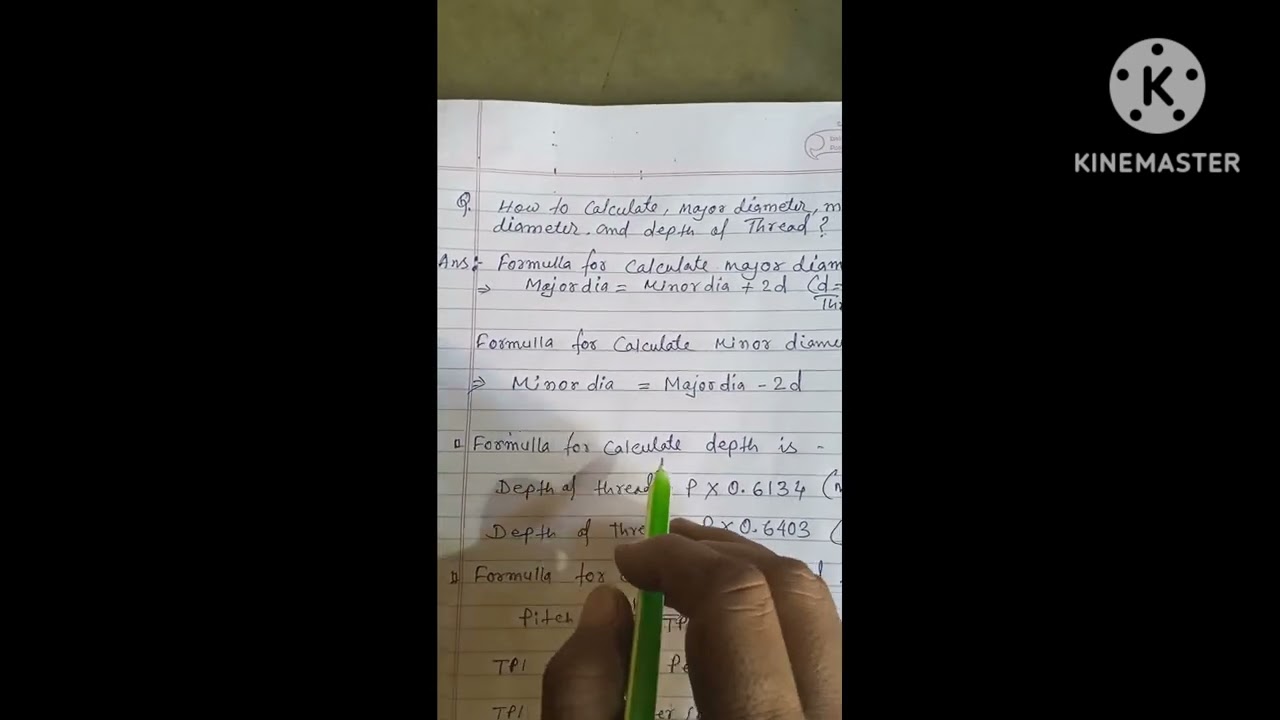 Q. How to Calculate, major diameter, m
diameter. and depth of Thread?
Ans:- Formulla for calculate major diam
⇒ Major dia = Minor dia + 2d (d=
Thr
Formulla for Calculate Minor diame
⇒ Minor dia = Major dia - 2d
Formulla for Calculate depth is -
Depth of thread P X 0.6134 (
Depth of thre P X 0.6403 (
Formulla for
Pitch TP
TPI Pe
TPI
K
KINEMASTER